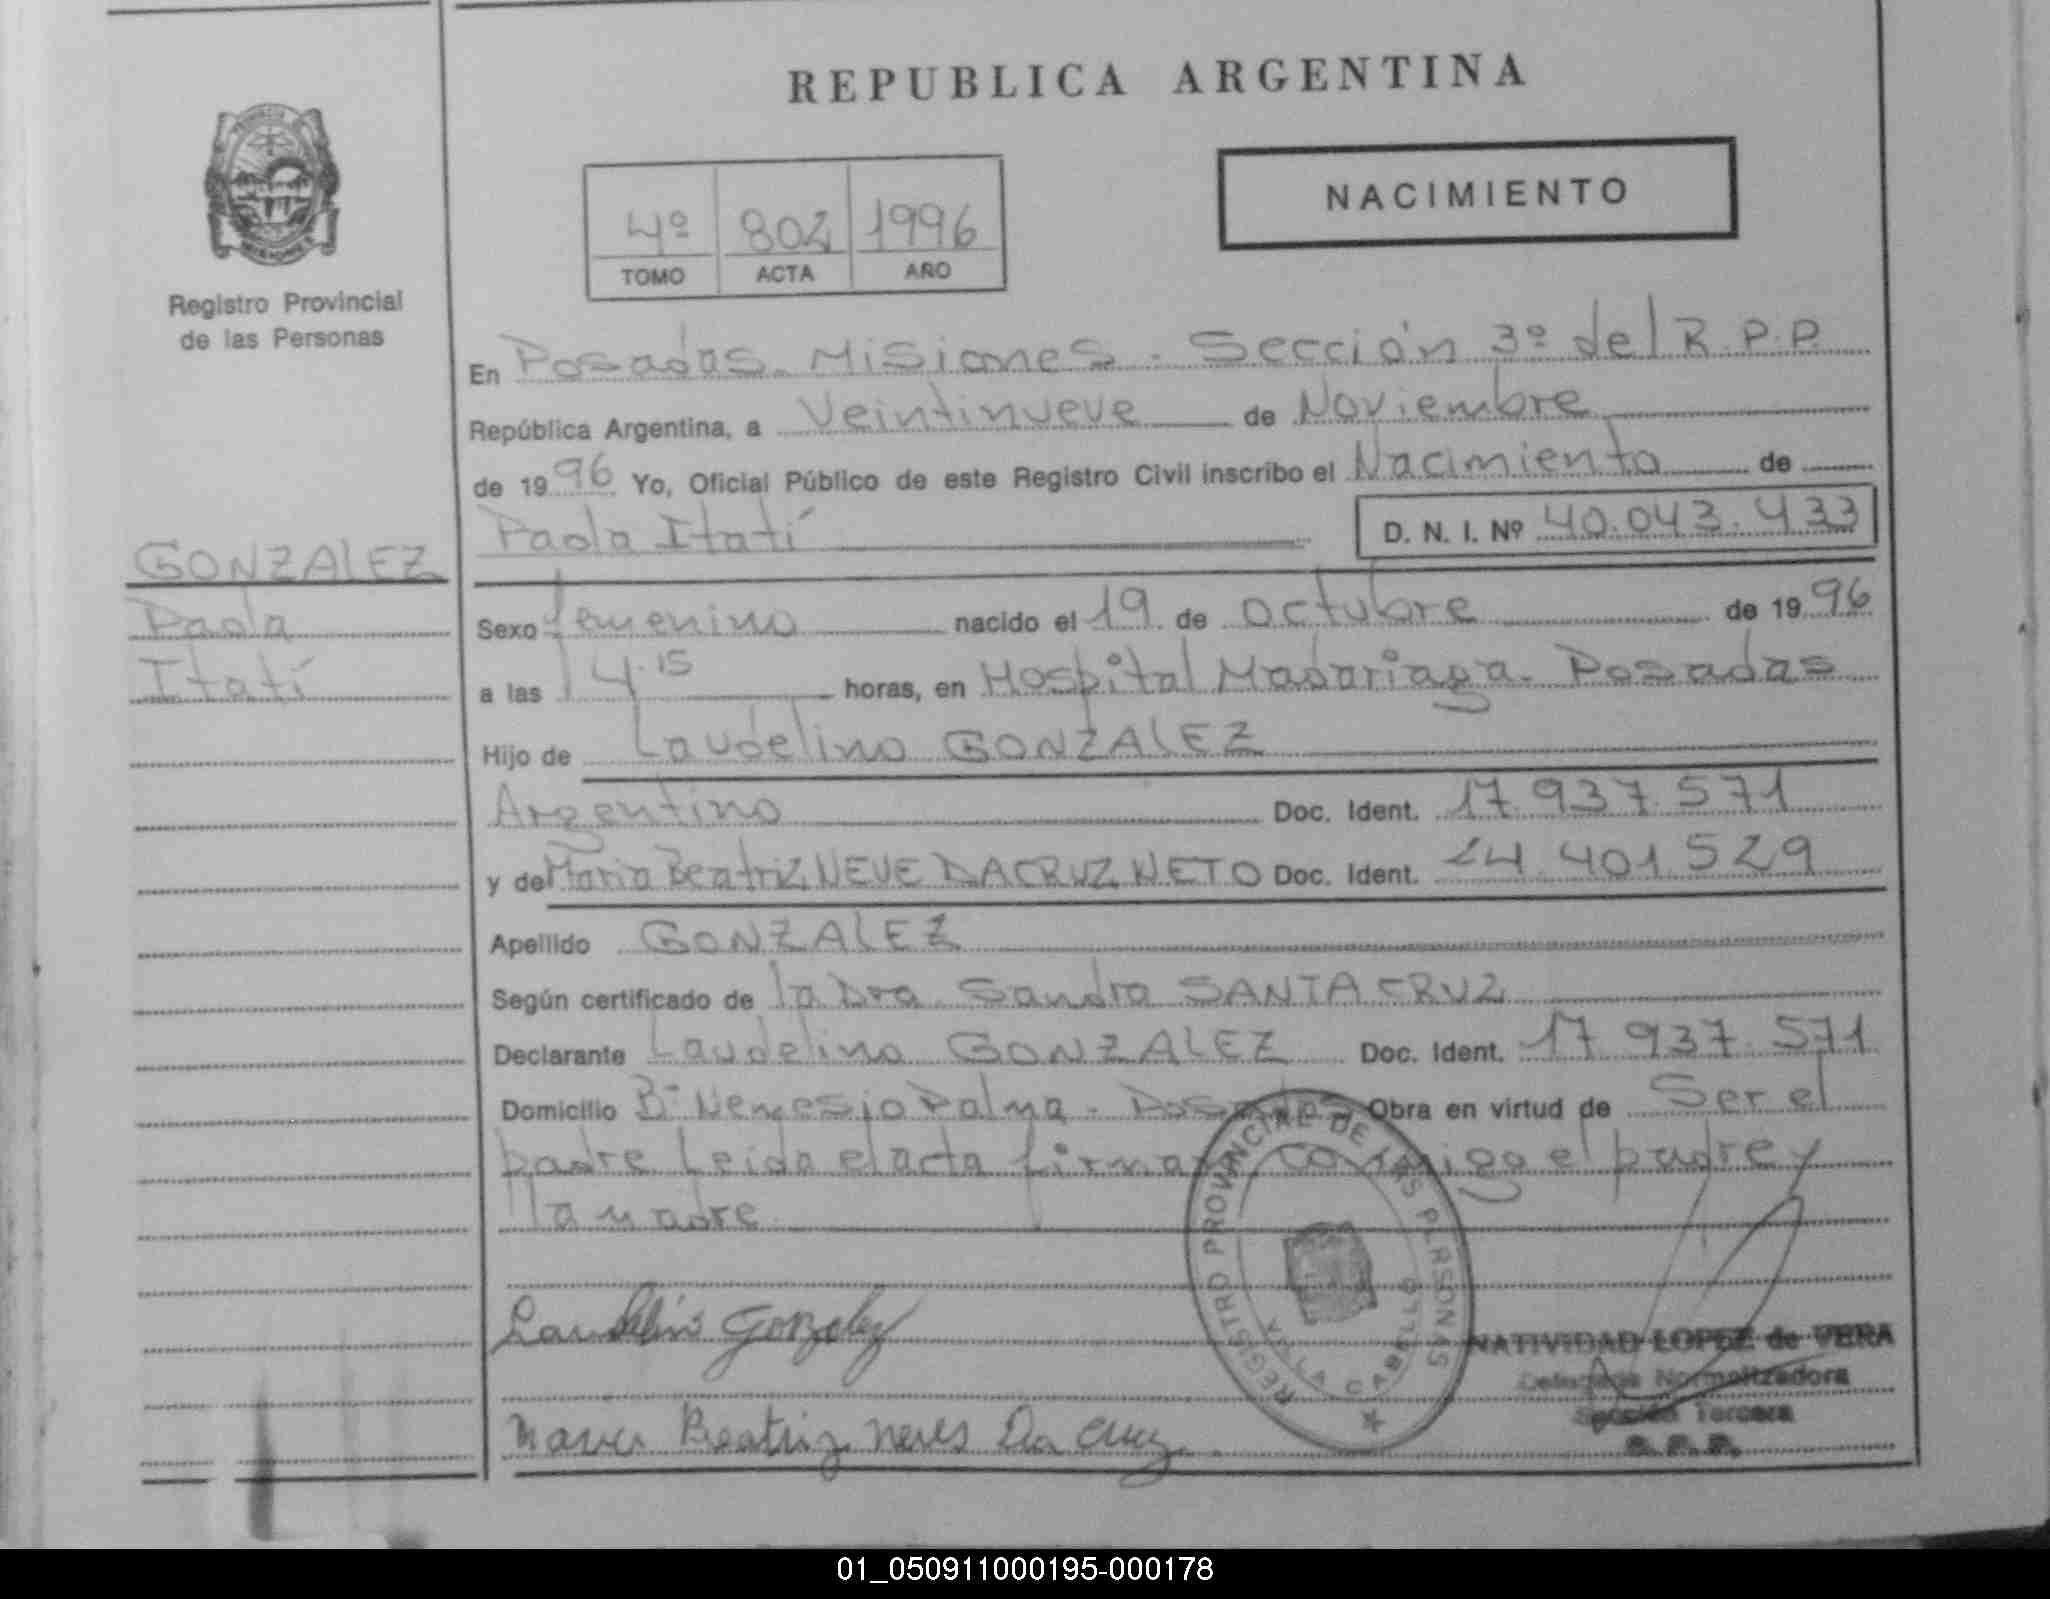 REPUBLICA ARGENTINA
NACIMIENTO
4º 802 1996
TOMO ACTA AÑO
Registro Provincial
de las Personas
En Posadas. Misiones. Sección 3º del R.P.P
República Argentina, a Veintinueve de Noviembre
de 1996 Yo, Oficial Público de este Registro Civil inscribo el Nacimiento de
Paola Itatí D. N. I. Nº 40.043.433
GONZALEZ
Paola
Itatí
Sexo femenino nacido el 19 de octubre de 1996
a las 14.15 horas, en Hospital Madariaga. Posadas
Hijo de Laudelino GONZALEZ
Argentino Doc. Ident. 17.937.571
y de Maria Beatriz NEVE DACRUZ NETO Doc. Ident. 24.401.529
Apellido GONZALEZ
Según certificado de la Dra. Sandra SANTA CRUZ
Declarante Laudelino GONZALEZ Doc. Ident. 17 937.571
Domicilio Bº Nemesio Palma. Posadas Obra en virtud de Ser el
padre Leida el acta firman conmigo el padre y
la madre
REGISTRO PROVINCIAL DE LAS PERSONAS
VILLA CABELLO
Laudelino Gonzalez
Maria Beatriz neves Da Cruz
NATIVIDAD LOPEZ de VERA
Delegada Normalizadora
Sección Tercera
R. P. P.
01_050911000195-000178